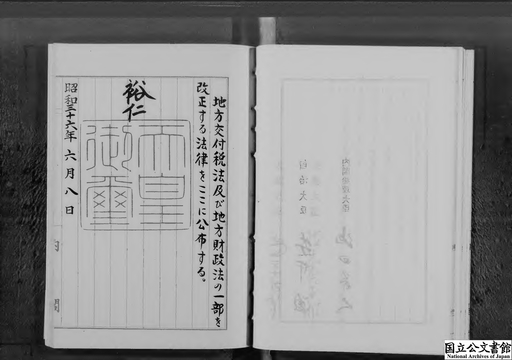 地方交付税法及び地方財政法の一部を
改正する法律をここに公布する。
裕仁
天皇
御璽
昭和三十六年六月八日
内閣
自治大臣
国立公文書館
National Archives of Japan